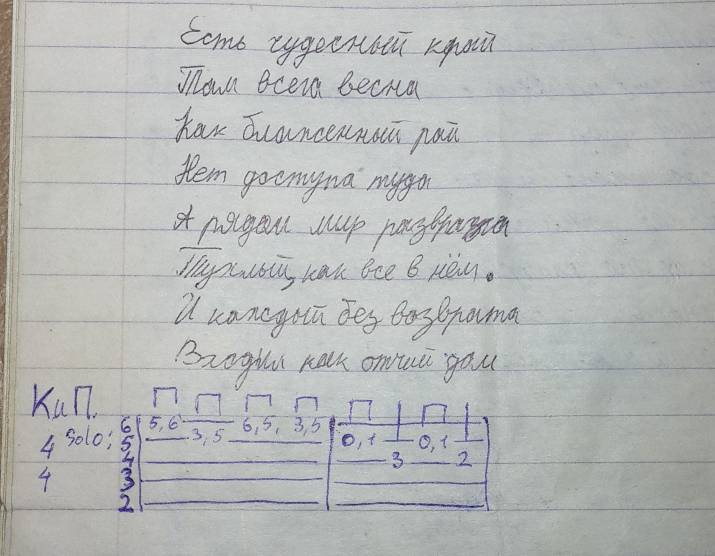 Есть чудесный край
Там всега весна
Как блаженный рай
Нет доступа туда
А рядом мир разврата
Тухлый, как все в нём.
И каждый без возврата
Входил как отчий дом
К и П.
4 solo:
4
6 5,6 3,5 6,5, 3,5 0,1 0,1
5 3 2
4
3
2